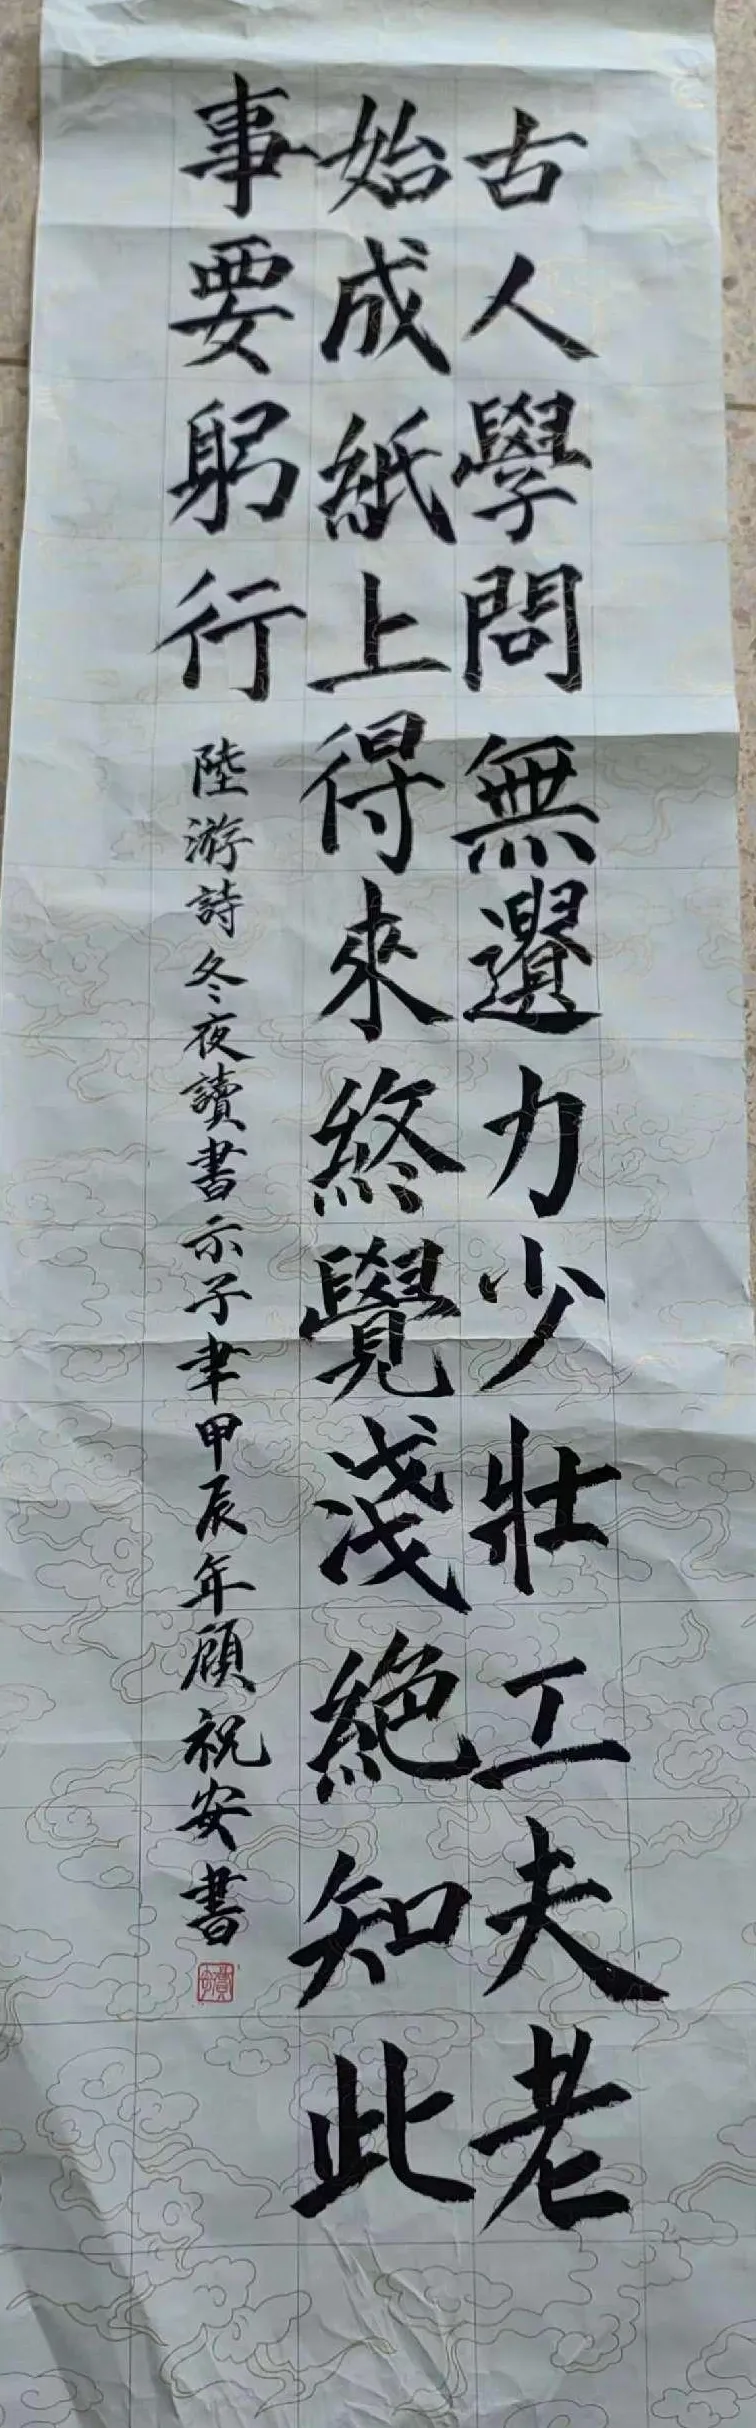 古人學問無遺力少壯工夫老
始成紙上得來終覺淺絕知此
事要躬行
陸游詩冬夜讀書示子聿甲辰年顧祝安書